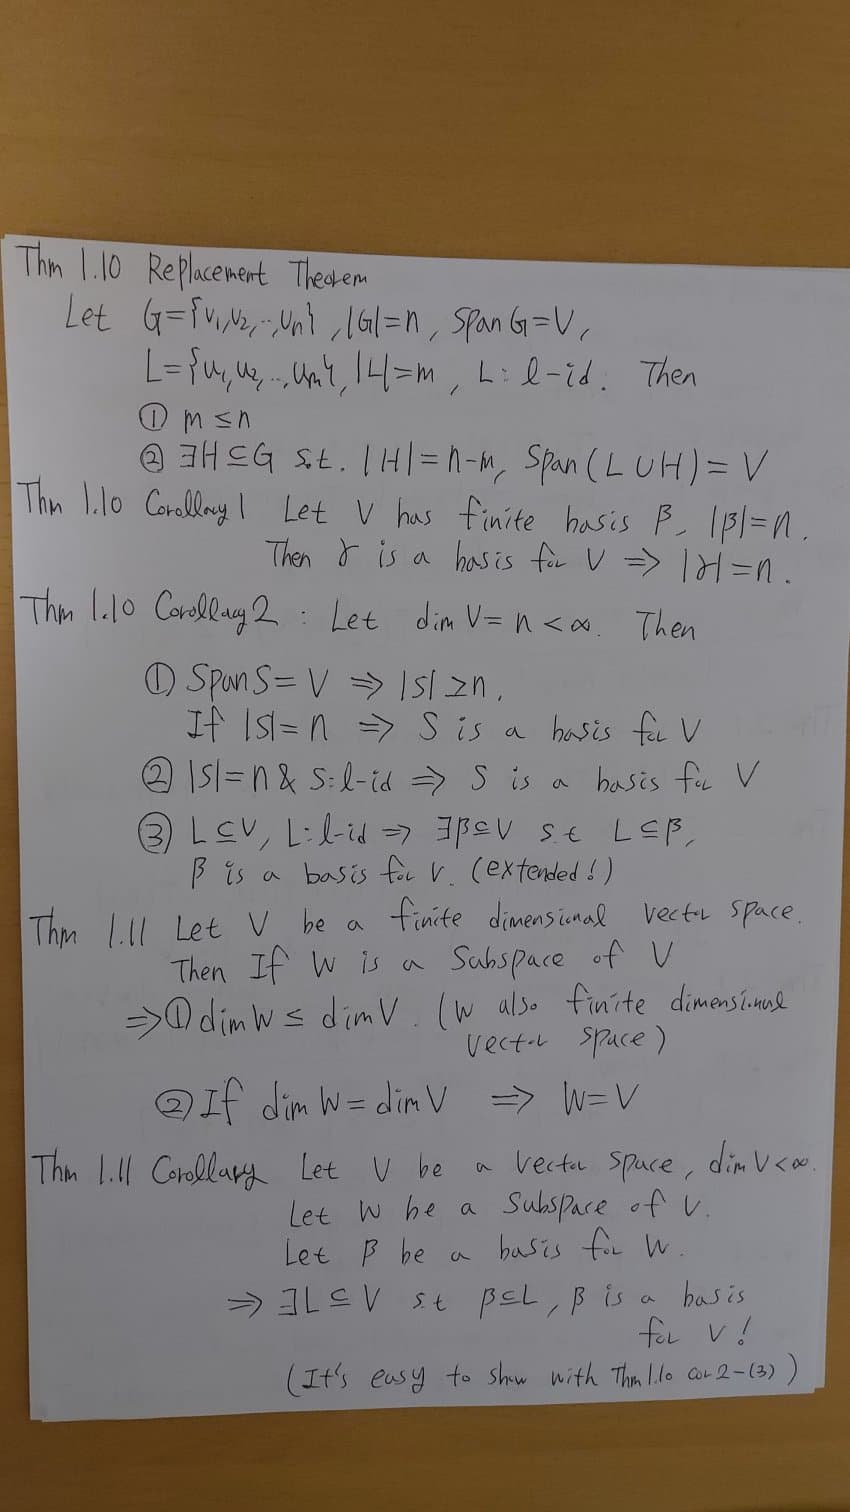 Thm 1.10 Replacement Theorem
Let G={v₁,v₂,..,vn}, |G|=n, span G=V,
L={u₁,u₂,..,um}, |L|=m, L: l-id. Then
① m≤n
② ∃H⊆G s.t. |H|=n-m, Span(L∪H)=V
Thm 1.10 Corollary 1 Let V has finite basis β, |β|=n.
Then γ is a basis for V ⇒ |γ|=n.
Thm 1.10 Corollary 2 : Let dim V= n<∞. Then
① Span S= V ⇒ |S|≥n.
If |S|=n ⇒ S is a basis for V
② |S|=n & S:l-id ⇒ S is a basis for V
③ L⊆V, L:l-id ⇒ ∃β⊆V s.t L⊆β,
β is a basis for V. (extended!)
Thm 1.11 Let V be a finite dimensional vector space.
Then If W is a Subspace of V
⇒① dim W ≤ dim V. (W also finite dimensional
vector space)
② If dim W = dim V ⇒ W=V
Thm 1.11 Corollary Let V be a vector space, dim V<∞.
Let W be a Subspace of V.
Let β be a basis for W.
⇒ ∃L⊆V s.t β⊆L, β is a basis
for V!
(It's easy to show with Thm 1.10 cor 2-(3))